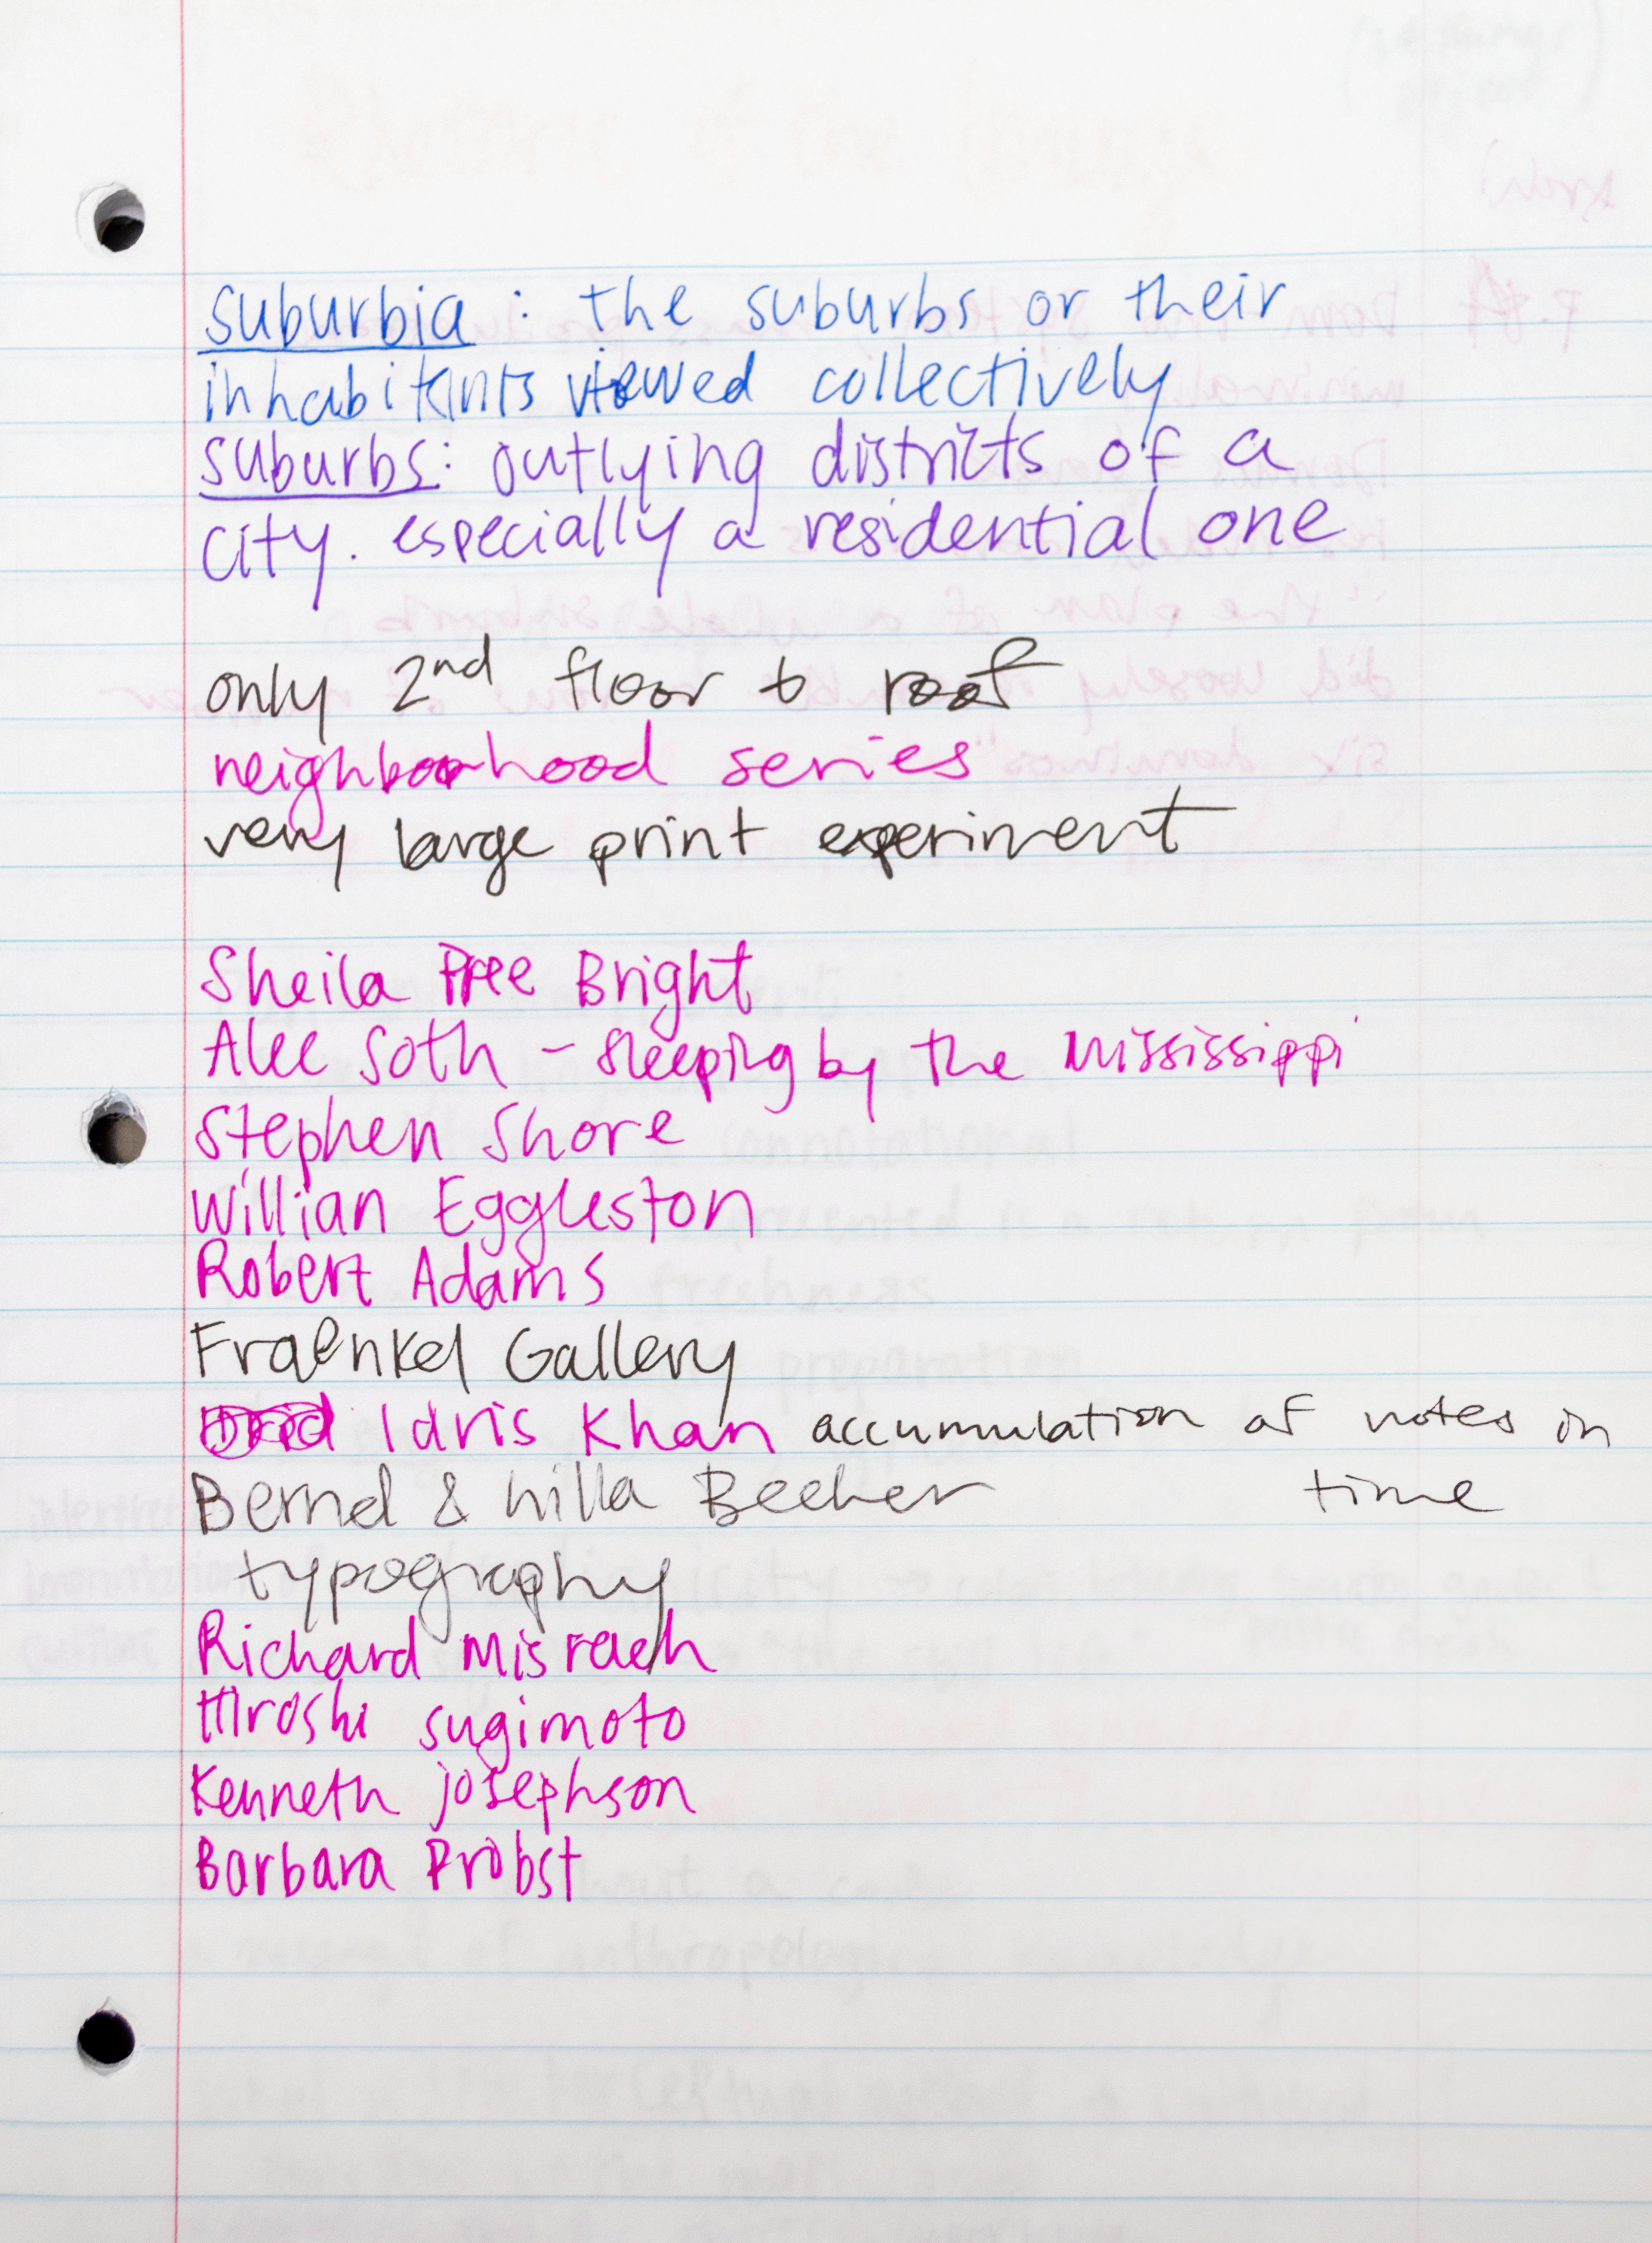 suburbia : the suburbs or their
inhabitants viewed collectively
suburbs: outlying districts of a
city. especially a residential one
only 2nd floor to roof
neighborhood series
very large print experiment
Sheila Pree Bright
Alec Soth – sleeping by the Mississippi
Stephen Shore
Willian Eggleston
Robert Adams
Fraenkel Gallery
Idris Khan accumulation of notes in
time
Bernd & hilla Becher
typography
Richard Misrach
Hiroshi sugimoto
Kenneth josephson
Barbara Probst